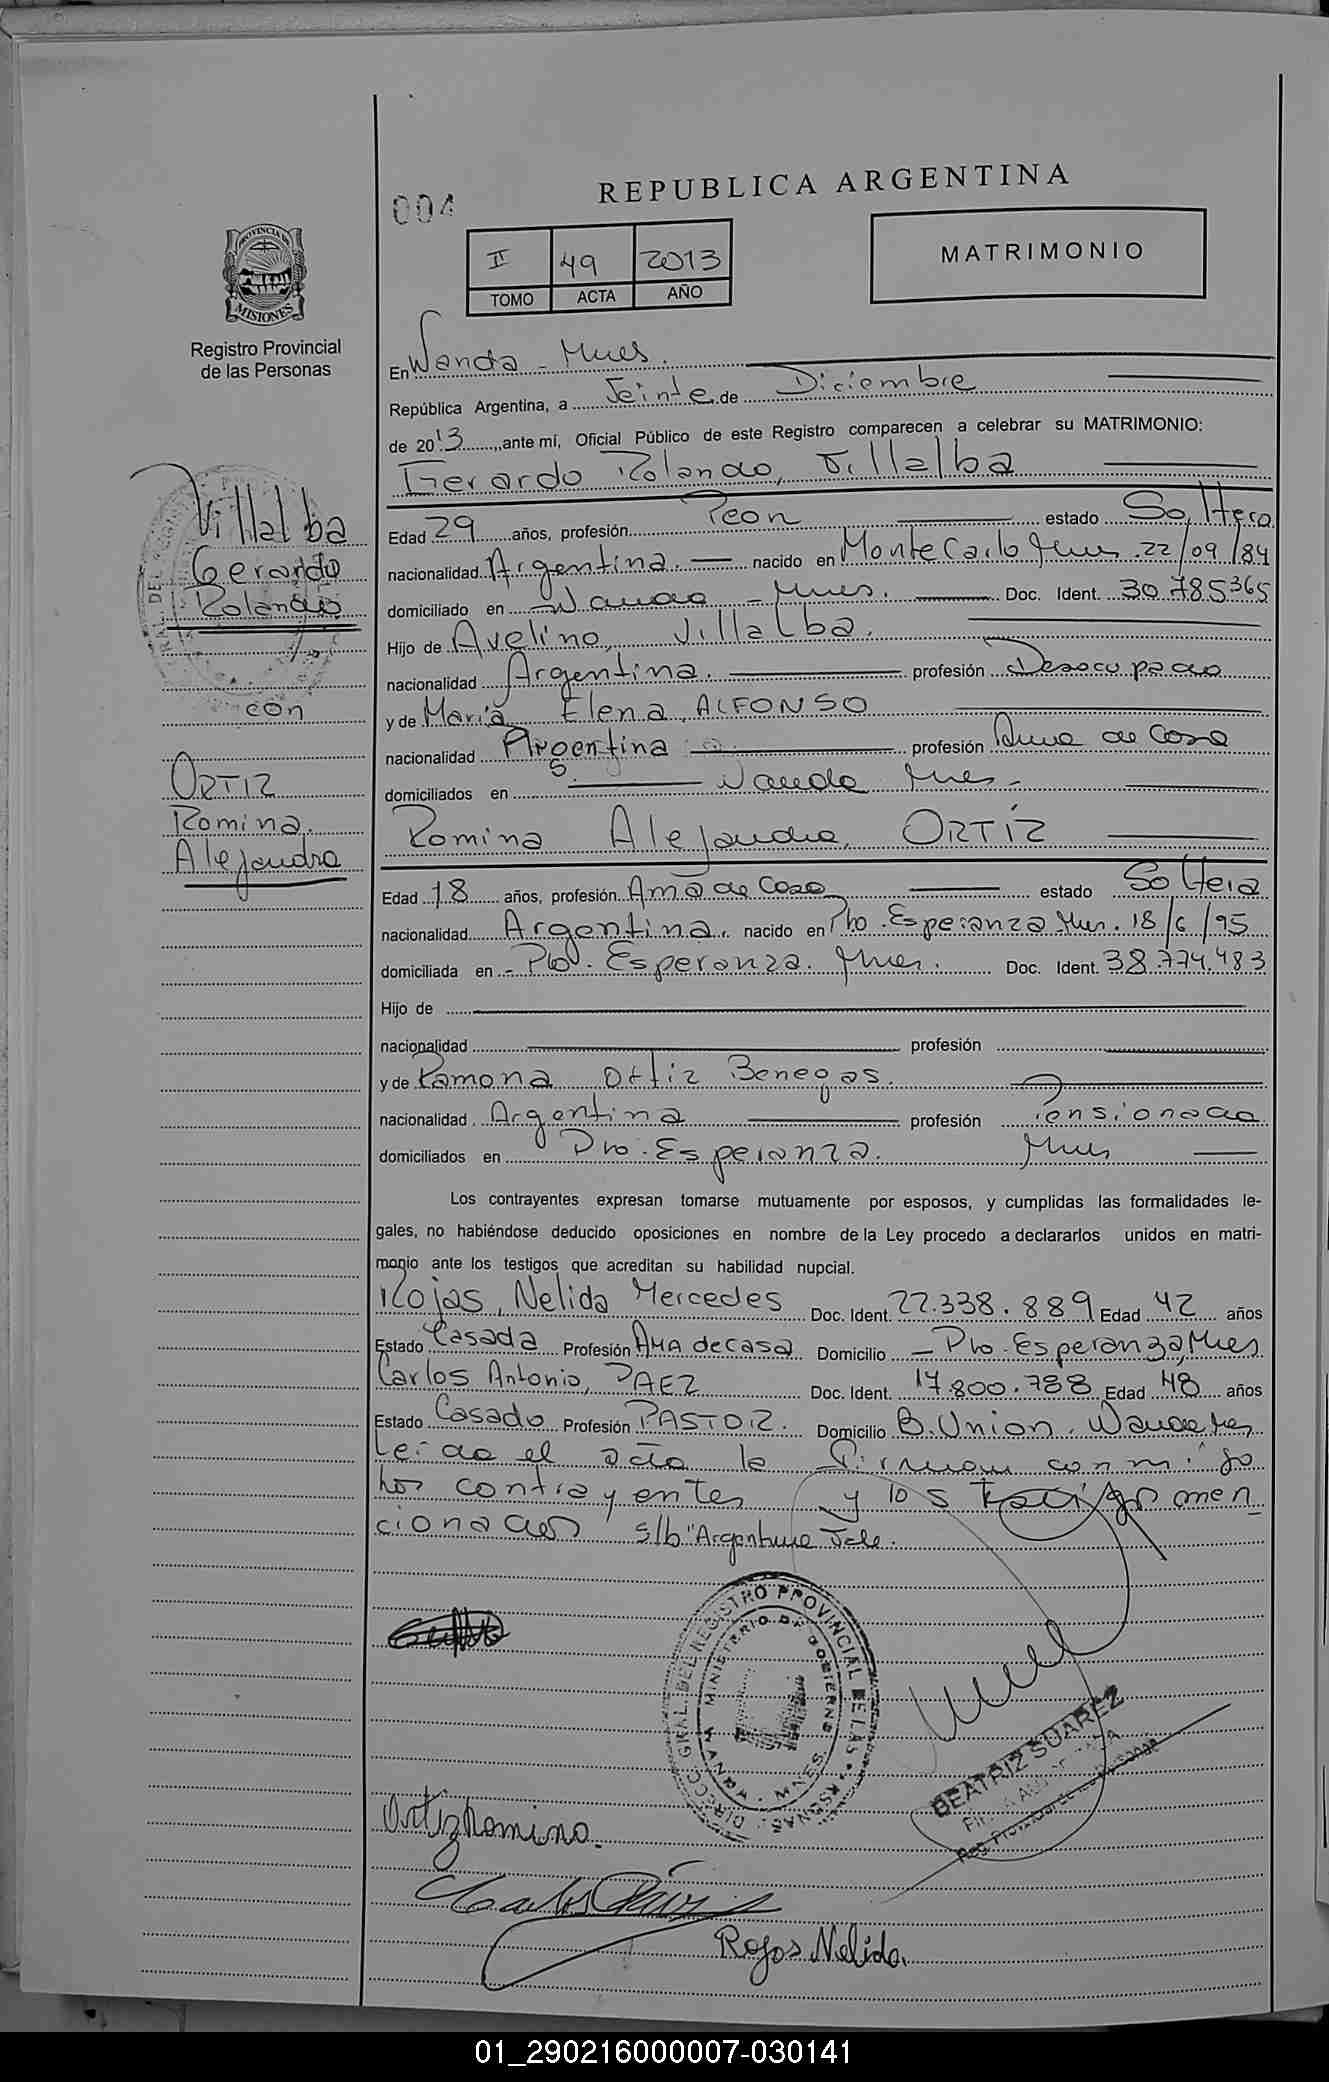 REPUBLICA ARGENTINA
004
II 49 2013
TOMO ACTA AÑO
MATRIMONIO
PROVINCIA DE
MISIONES
Registro Provincial
de las Personas
En Wanda - Mnes.
República Argentina, a Veinte de Diciembre
de 2013, ante mí, Oficial Público de este Registro comparecen a celebrar su MATRIMONIO:
Gerardo Rolando, Villalba
Villalba
Gerardo
Rolando
con
ORTIZ
Romina
Alejandra
Edad 29 años, profesión Peon estado Soltero
nacionalidad Argentina. nacido en Monte Carlo Mnes. 22/09/84
domiciliado en Wanda - Mnes. Doc. Ident. 30.785365
Hijo de Avelino, Villalba.
nacionalidad Argentina. profesión Desocupado
y de María Elena, ALFONSO
nacionalidad Argentina profesión Ama de Casa
domiciliados en Wanda Mnes.
Romina Alejandra, ORTÍZ
Edad 18 años, profesión Ama de Casa estado Soltera
nacionalidad Argentina. nacido en Pto. Esperanza Mnes. 18/6/95
domiciliada en - Pto. Esperanza. Mnes. Doc. Ident. 38.774.483
Hijo de
nacionalidad profesión
y de Ramona Ortiz Benegas.
nacionalidad Argentina profesión Pensionada
domiciliados en Pto. Esperanza. Mnes
Los contrayentes expresan tomarse mutuamente por esposos, y cumplidas las formalidades le-
gales, no habiéndose deducido oposiciones en nombre de la Ley procedo a declararlos unidos en matri-
monio ante los testigos que acreditan su habilidad nupcial.
Rojas, Nelida Mercedes Doc. Ident. 22.338.889 Edad 42 años
Estado Casada Profesión AMA de casa Domicilio - Pto. Esperanza, Mnes
Carlos Antonio, PAEZ Doc. Ident. 17.800.788 Edad 48 años
Estado Casado Profesión PASTOR. Domicilio B. Union. Wanda Mnes
Leída el acta la Firman conmigo
los contrayentes y los testigos men
cionados s/b "Argentina Vale.
DIRECC. GRAL. DEL REGISTRO PROVINCIAL DE LAS PERSONAS
MINISTERIO DE GOBIERNO
WANDA MNES.
BEATRIZ SUAREZ
Reg. Provincial de las Personas
Ortiz Romina.
Rojas Nelida.
01_290216000007-030141